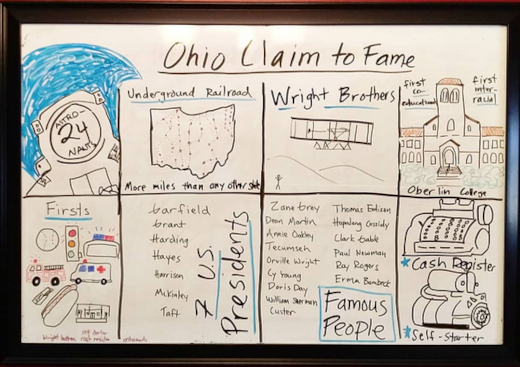 Ohio Claim to Fame
ASTRO-
24
NAUTS
Underground Railroad
More miles than any other state
Wright Brothers
first
co-
educational
first
inter-
racial
Oberlin College
Firsts
Garfield
Grant
Harding
Hayes
Harrison
McKinley
Taft
7 U.S.
Presidents
Zane Grey
Dean Martin
Annie Oakley
Tecumseh
Orville Wright
Cy Young
Doris Day
William Sherman
Custer
Thomas Edison
Hopalong Cassidy
Clark Gable
Paul Newman
Roy Rogers
Erma Bombeck
Famous
People
Cash Register
Self-Starter